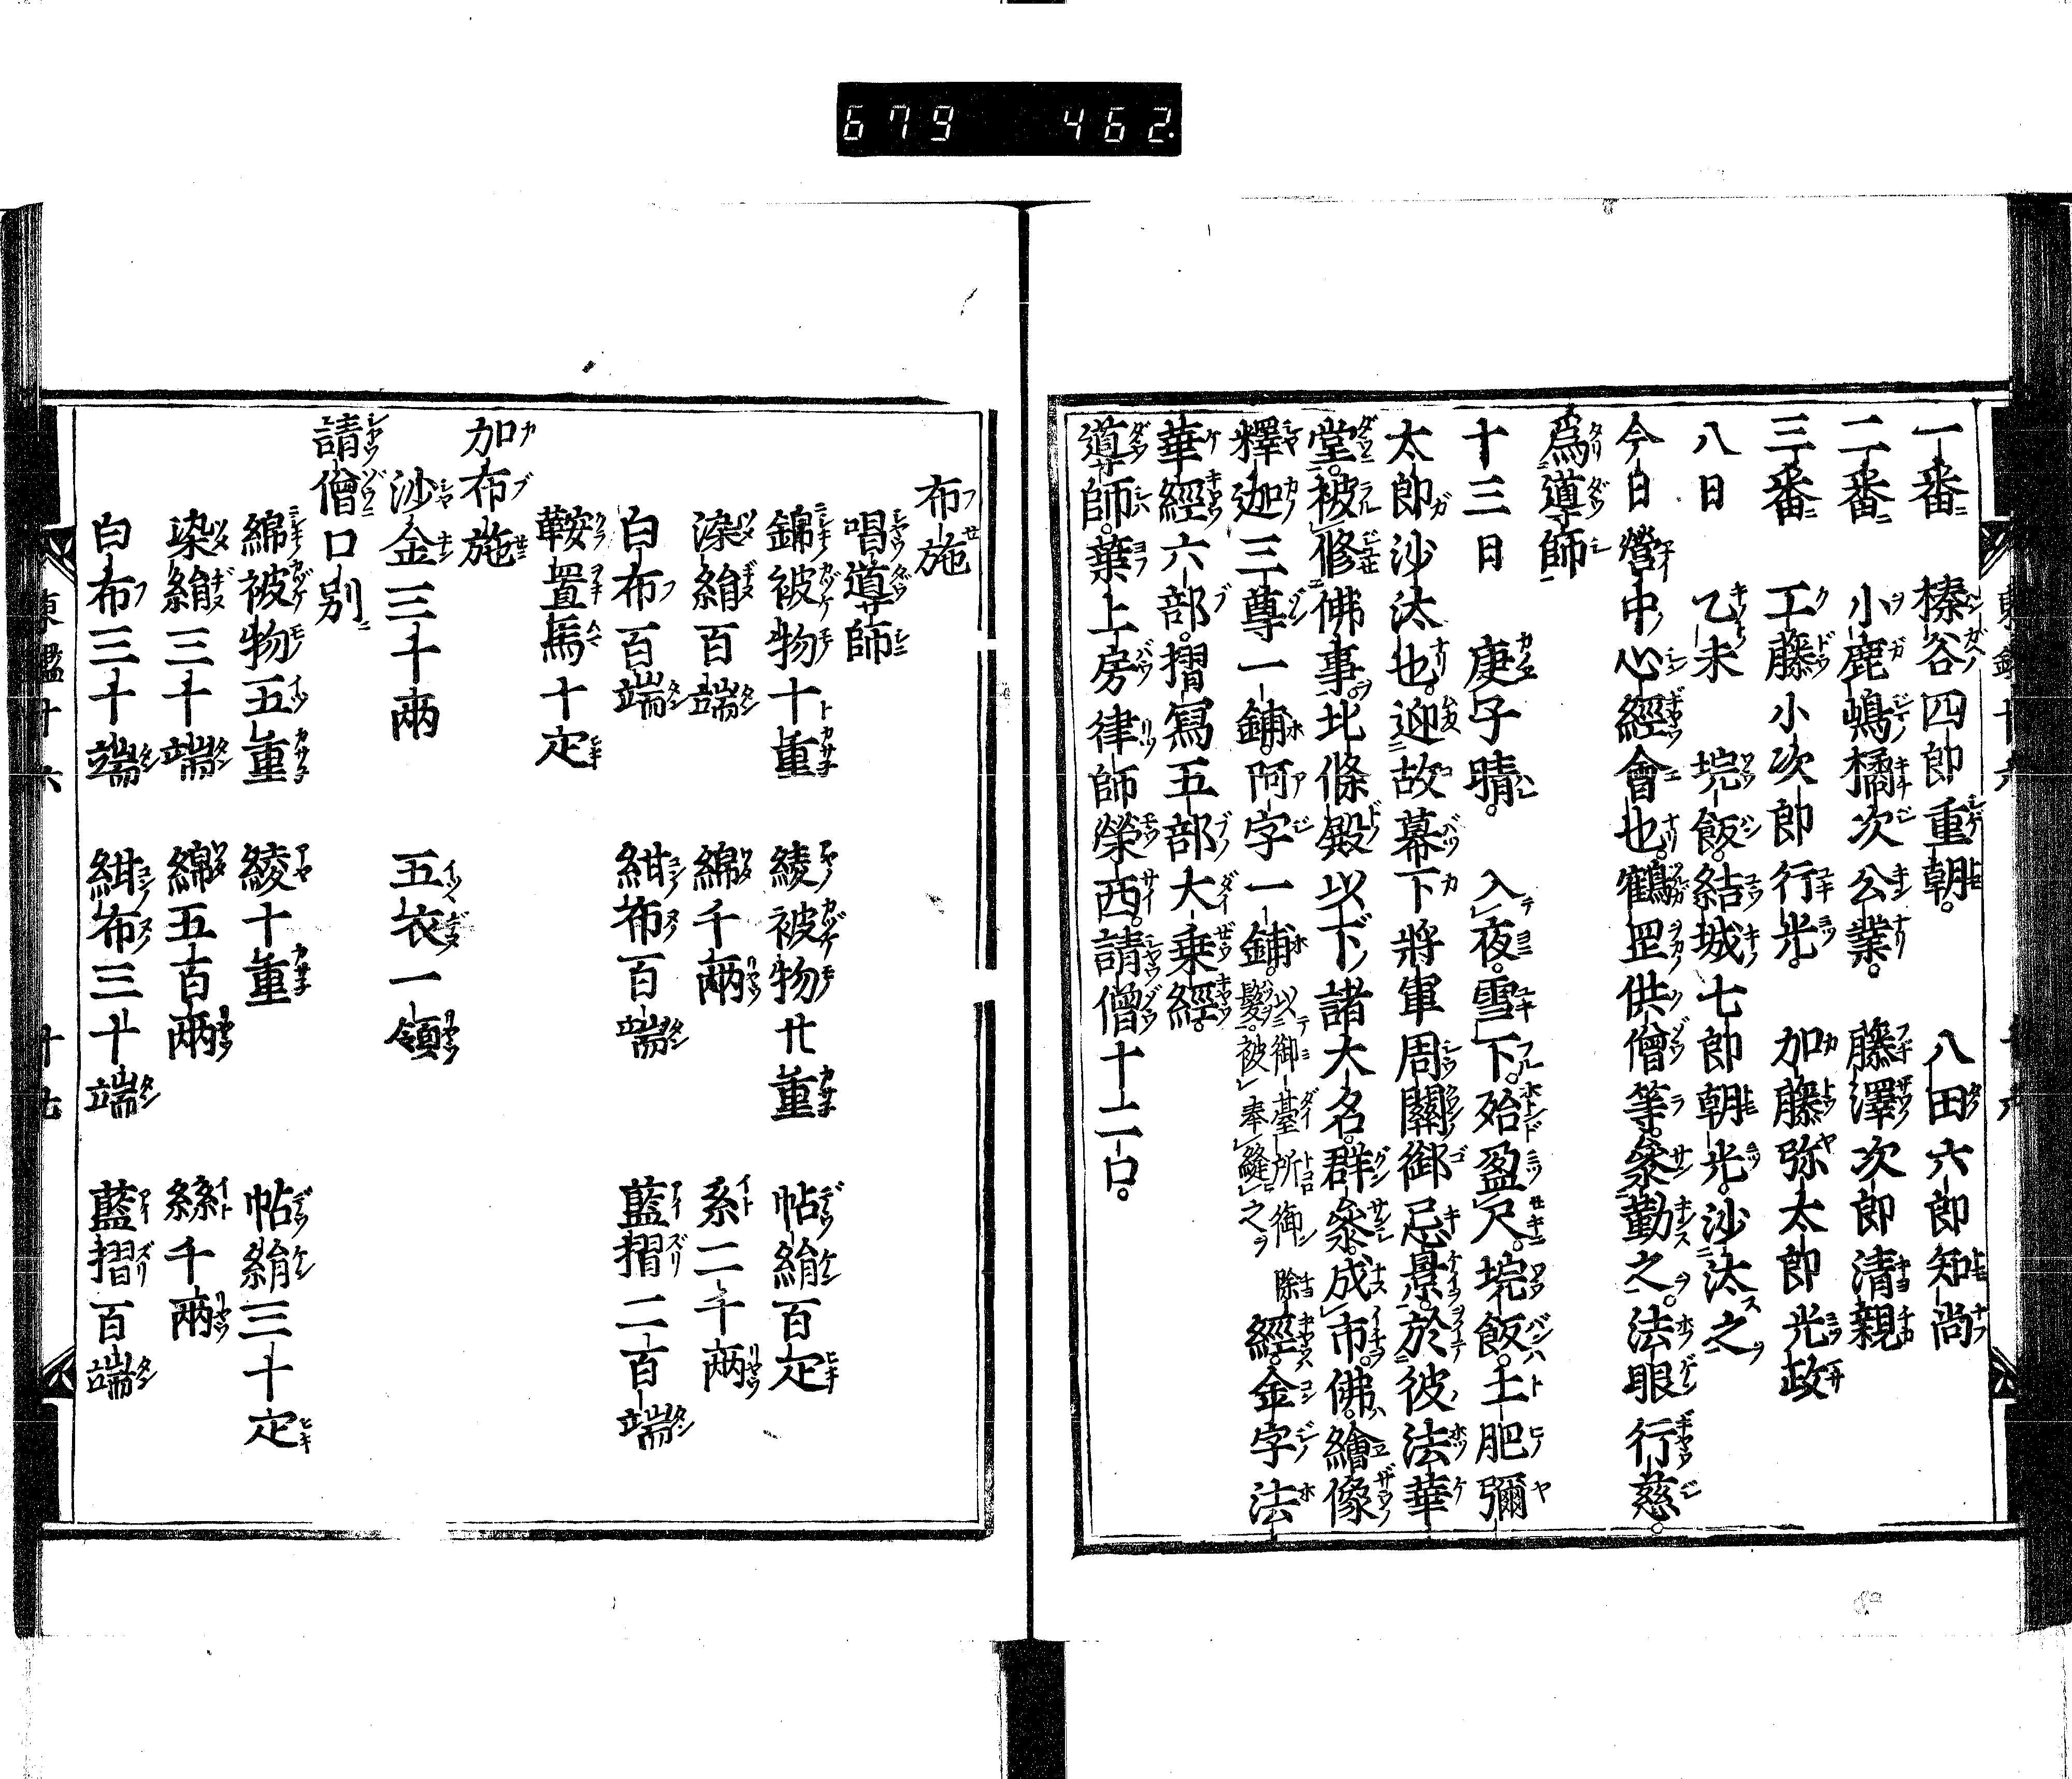 679 462
一番 榛谷四郎重朝。 八田六郎知尚
二番 小鹿嶋橘次公業。 藤澤次郎清親
三番 工藤小次郎行光。 加藤弥太郎光政
八日 乙未 垸飯。結城七郎朝光。沙汰之
今日營中心經會也。鶴岡供僧等。參勤之。法眼行慈。
爲導師
十三日 庚子晴。 入夜。雪下。殆盈尺。垸飯。土肥彌
太郎沙汰也。迎故幕下將軍周關御忌景。於彼法華
堂。被修佛事。北條殿以下諸大名。群參。成市。佛。繪像
釋迦三尊一鋪。阿字一鋪。以御臺所御除髮。被奉縫之 經。金字法
華經六部。摺寫五部大乗經。
導師。葉上房律師榮西。請僧十二口。
布施
唱導師
錦被物十重 綾被物廿重 帖絹百疋
染絹百端 綿千兩 糸二千兩
白布百端 紺布百端 藍摺二百端
鞍置馬十疋
加布施
沙金三十兩 五衣一領
請僧口別
綿被物五重 綾十重 帖絹三十疋
染絹三十端 綿五百兩 絲千兩
白布三十端 紺布三十端 藍摺百端
東鑑十六 十七